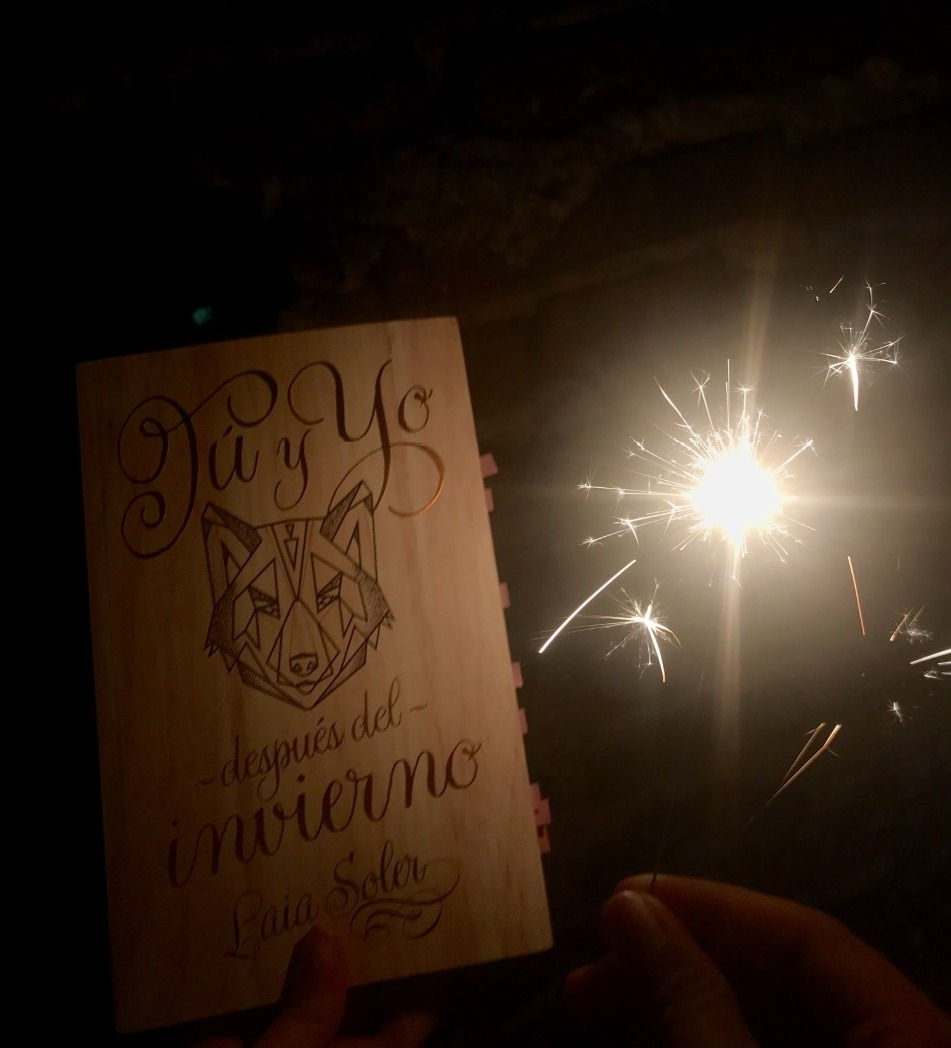 Tú y Yo
~ después del ~
invierno
Laia Soler